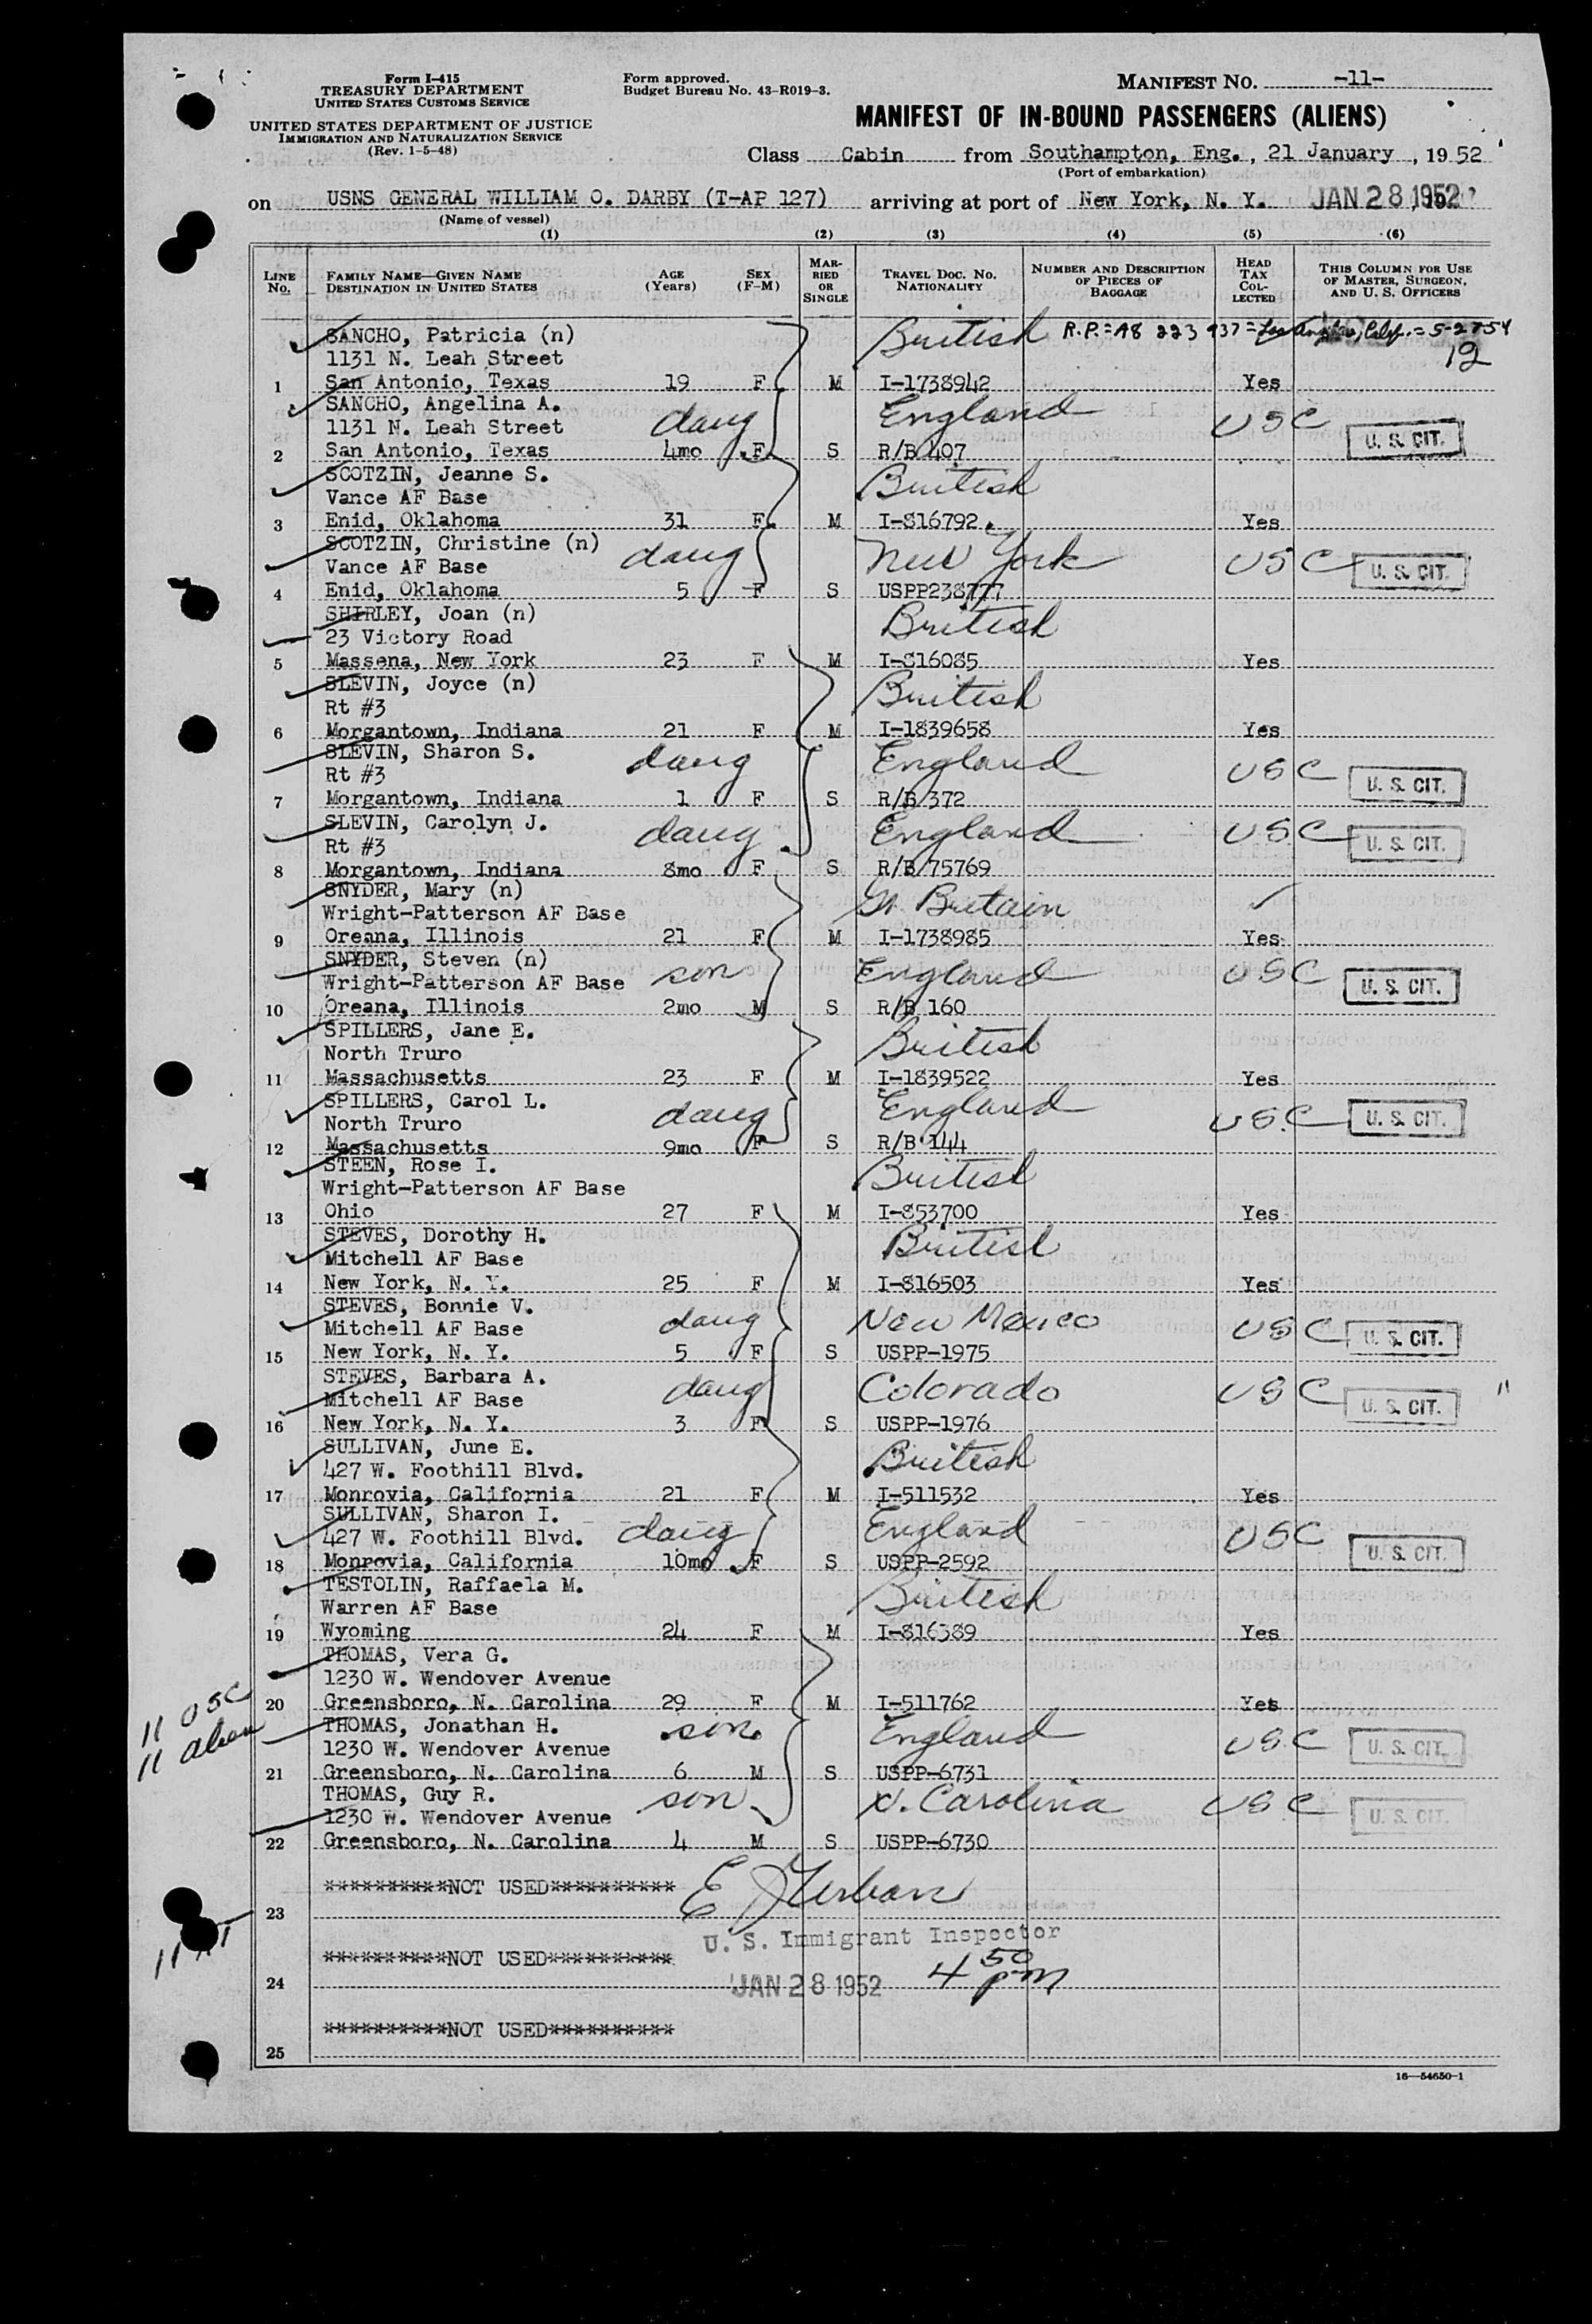 Form I-415
TREASURY DEPARTMENT
UNITED STATES CUSTOMS SERVICE
UNITED STATES DEPARTMENT OF JUSTICE
IMMIGRATION AND NATURALIZATION SERVICE
(Rev. 1-5-48)
Form approved.
Budget Bureau No. 43-R019-3.
MANIFEST NO. -11-
MANIFEST OF IN-BOUND PASSENGERS (ALIENS)
Class Cabin from Southampton, Eng., 21 January, 1952
(Port of embarkation)
on USNS GENERAL WILLIAM O. DARBY (T-AP 127) arriving at port of New York, N. Y. JAN 28 1952
(Name of vessel)
(1) (2) (3) (4) (5) (6)
LINE No. FAMILY NAME—GIVEN NAME DESTINATION IN UNITED STATES AGE (Years) SEX (F-M) MARRIED OR SINGLE TRAVEL DOC. NO. NATIONALITY NUMBER AND DESCRIPTION OF PIECES OF BAGGAGE HEAD TAX COLLECTED THIS COLUMN FOR USE OF MASTER, SURGEON, AND U. S. OFFICERS
SANCHO, Patricia (n) British R.P.=A8 223 937= Los Angeles, Calif.= 5-27-54
1131 N. Leah Street 12
1 San Antonio, Texas 19 F M I-1738942 Yes
SANCHO, Angelina A. England
1131 N. Leah Street daug USC U. S. CIT.
2 San Antonio, Texas 4mo F S R/B 407
SCOTZIN, Jeanne S. British
Vance AF Base
3 Enid, Oklahoma 31 F M I-816792 Yes
SCOTZIN, Christine (n) daug New York USC U. S. CIT.
Vance AF Base
4 Enid, Oklahoma 5 F S USPP238777
SHIRLEY, Joan (n) British
23 Victory Road
5 Massena, New York 23 F M I-816085 Yes
SLEVIN, Joyce (n) British
Rt #3
6 Morgantown, Indiana 21 F M I-1839658 Yes
SLEVIN, Sharon S. daug England USC U. S. CIT.
Rt #3
7 Morgantown, Indiana 1 F S R/B 372
SLEVIN, Carolyn J. daug England USC U. S. CIT.
Rt #3
8 Morgantown, Indiana 8mo F S R/B 75769
SNYDER, Mary (n) Gt. Britain
Wright-Patterson AF Base
9 Oreana, Illinois 21 F M I-1738985 Yes
SNYDER, Steven (n) son England USC U. S. CIT.
Wright-Patterson AF Base
10 Oreana, Illinois 2mo M S R/B 160
SPILLERS, Jane E. British
North Truro
11 Massachusetts 23 F M I-1839522 Yes
SPILLERS, Carol L. daug England USC U. S. CIT.
North Truro
12 Massachusetts 9mo F S R/B 144
STEEN, Rose I. British
Wright-Patterson AF Base
13 Ohio 27 F M I-853700 Yes
STEVES, Dorothy H. British
Mitchell AF Base
14 New York, N. Y. 25 F M I-816503 Yes
STEVES, Bonnie V. daug New Mexico USC U. S. CIT.
Mitchell AF Base
15 New York, N. Y. 5 F S USPP-1975
STEVES, Barbara A. daug Colorado USC U. S. CIT.
Mitchell AF Base
16 New York, N. Y. 3 F S USPP-1976
SULLIVAN, June E. British
427 W. Foothill Blvd.
17 Monrovia, California 21 F M I-511532 Yes
SULLIVAN, Sharon I. daug England USC U. S. CIT.
427 W. Foothill Blvd.
18 Monrovia, California 10mo F S USPP-2592
TESTOLIN, Raffaela M. British
Warren AF Base
19 Wyoming 24 F M I-816389 Yes
THOMAS, Vera G.
1230 W. Wendover Avenue
20 Greensboro, N. Carolina 29 F M I-511762 Yes
11 USC
11 alien
THOMAS, Jonathan H. son England USC U. S. CIT.
1230 W. Wendover Avenue
21 Greensboro, N. Carolina 6 M S USPP-6731
THOMAS, Guy R. son N. Carolina USC U. S. CIT.
1230 W. Wendover Avenue
22 Greensboro, N. Carolina 4 M S USPP-6730
**********NOT USED**********
23
U. S. Immigrant Inspector
**********NOT USED********** 4 50 pm
24 JAN 28 1952
**********NOT USED**********
25
16—54650-1